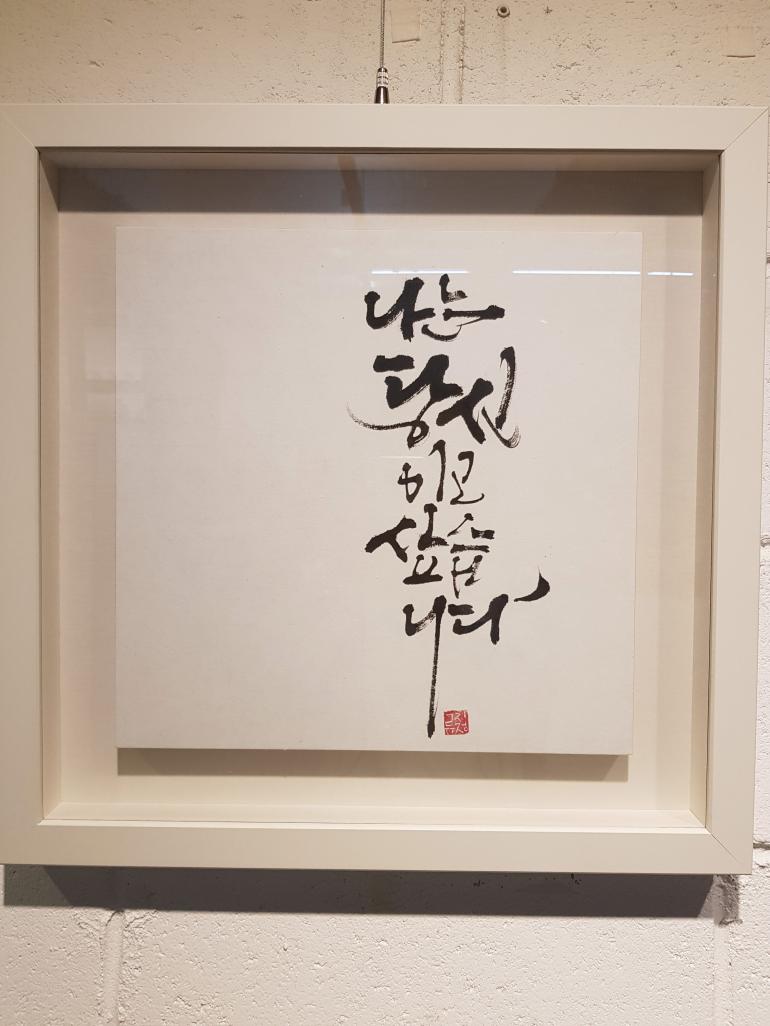 나는
당신
이고
싶습
니다